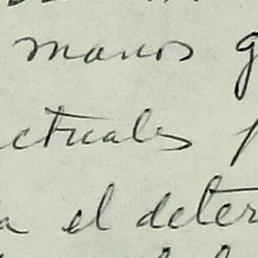 manos g
ctuales p
a el deter